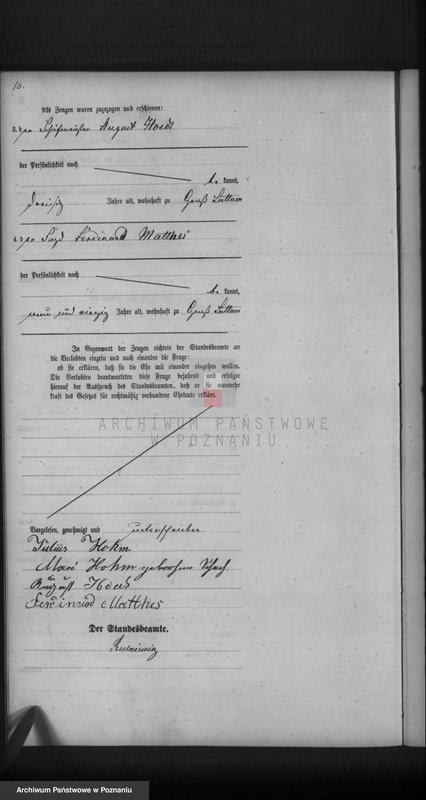 16.
Als Zeugen waren zugezogen und erschienen:
3. der August Hoeds
der Persönlichkeit nach
be kannt,
dreißig Jahre alt, wohnhaft zu Groß Luttom
4. der Ferdinand Matthes
der Persönlichkeit nach
be kannt,
neun und vierzig Jahre alt, wohnhaft zu Groß Luttom
In Gegenwart der Zeugen richtete der Standesbeamte an
die Verlobten einzeln und nach einander die Frage:
ob sie erklären, daß sie die Ehe mit einander eingehen wollen.
Die Verlobten beantworteten diese Frage bejahend und erfolgte
hierauf der Ausspruch des Standesbeamten, daß er sie nunmehr
kraft des Gesetzes für rechtmäßig verbundene Eheleute erkläre.
ARCHIWUM PAŃSTWOWE
W POZNANIU
Vorgelesen, genehmigt und unterschrieben
Julius Hohm
Mari Hohm geborhene
August Hoeds
Ferdinand Matthes
Der Standesbeamte.
Archiwum Państwowe w Poznaniu
Archiwum Państwowe w Poznaniu